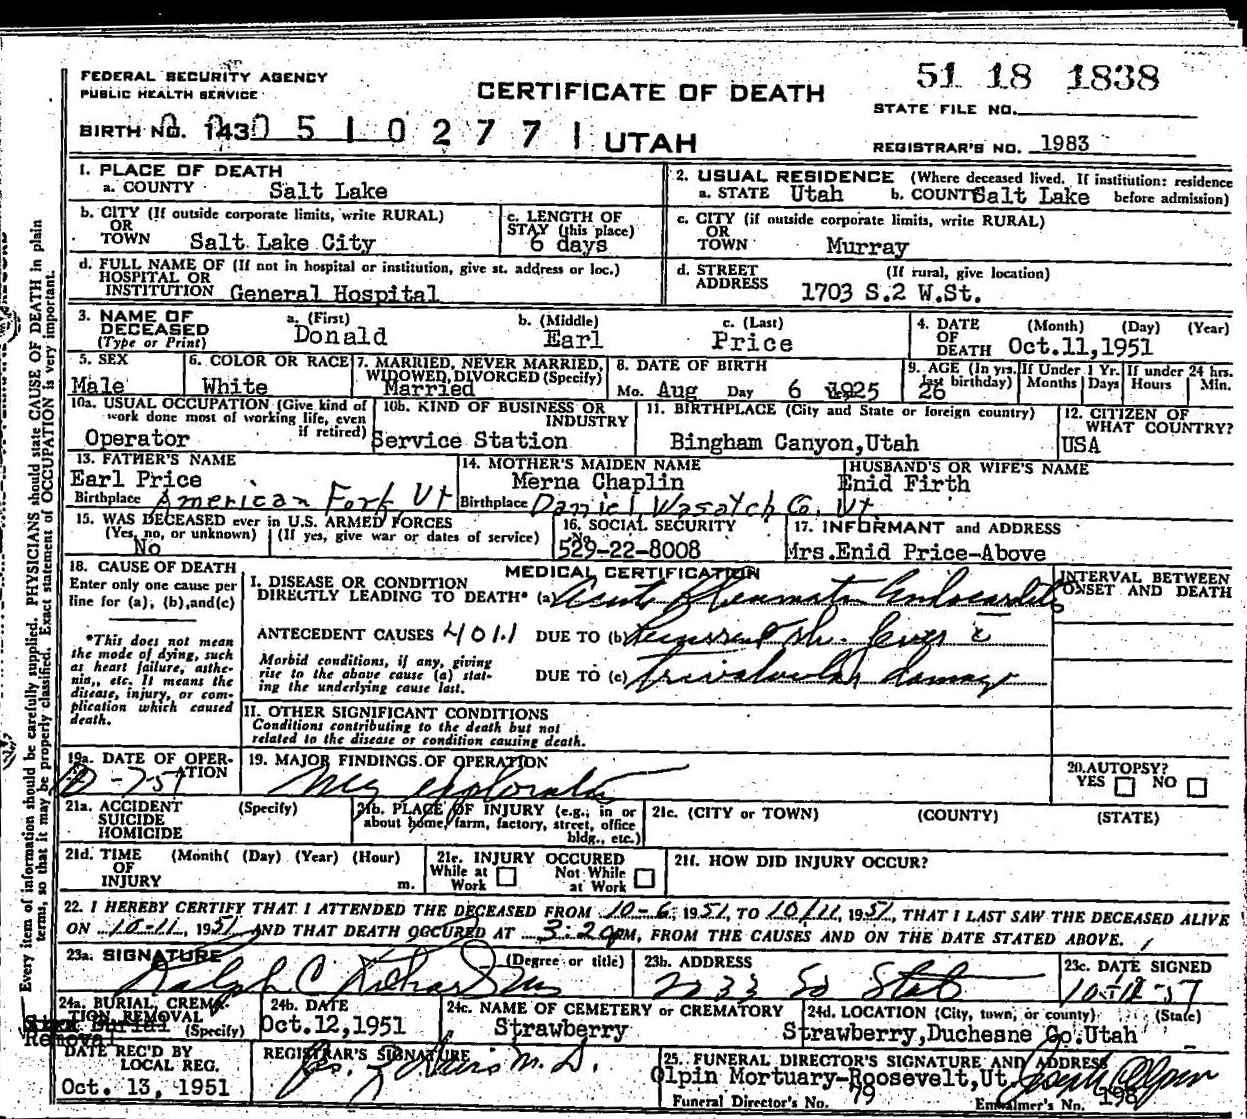 FEDERAL SECURITY AGENCY
PUBLIC HEALTH SERVICE
CERTIFICATE OF DEATH
51 18 1838
STATE FILE NO.
BIRTH NO. 143 0 5 1 0 2 7 7 1 UTAH
REGISTRAR'S NO. 1983
1. PLACE OF DEATH
a. COUNTY Salt Lake
2. USUAL RESIDENCE (Where deceased lived. If institution: residence before admission)
a. STATE Utah b. COUNTY Salt Lake
b. CITY (If outside corporate limits, write RURAL)
OR
TOWN Salt Lake City
c. LENGTH OF
STAY (this place)
6 days
c. CITY (if outside corporate limits, write RURAL)
OR
TOWN Murray
d. FULL NAME OF (If not in hospital or institution, give st. address or loc.)
HOSPITAL OR
INSTITUTION General Hospital
d. STREET (If rural, give location)
ADDRESS 1703 S.2 W.St.
3. NAME OF
DECEASED
(Type or Print)
a. (First) b. (Middle) c. (Last)
Donald Earl Price
4. DATE (Month) (Day) (Year)
OF
DEATH Oct.11,1951
5. SEX
Male
6. COLOR OR RACE
White
7. MARRIED, NEVER MARRIED,
WIDOWED, DIVORCED (Specify)
Married
8. DATE OF BIRTH
Mo. Aug Day 6 1925
9. AGE (In yrs. last birthday)
26
If Under 1 Yr.
Months Days
If under 24 hrs.
Hours Min.
10a. USUAL OCCUPATION (Give kind of
work done most of working life, even
if retired)
Operator
10b. KIND OF BUSINESS OR
INDUSTRY
Service Station
11. BIRTHPLACE (City and State or foreign country)
Bingham Canyon,Utah
12. CITIZEN OF
WHAT COUNTRY?
USA
13. FATHER'S NAME
Earl Price
Birthplace American Fork, Ut
14. MOTHER'S MAIDEN NAME
Merna Chaplin
Birthplace Daniel, Wasatch Co. Ut
HUSBAND'S OR WIFE'S NAME
Enid Firth
15. WAS DECEASED ever in U.S. ARMED FORCES
(Yes, no, or unknown) (If yes, give war or dates of service)
No
16. SOCIAL SECURITY
No.
529-22-8008
17. INFORMANT and ADDRESS
Mrs.Enid Price-Above
18. CAUSE OF DEATH
Enter only one cause per
line for (a), (b),and(c)
*This does not mean
the mode of dying, such
as heart failure, asthe-
nia,, etc. It means the
disease, injury, or com-
plication which caused
death.
MEDICAL CERTIFICATION
INTERVAL BETWEEN
ONSET AND DEATH
I. DISEASE OR CONDITION
DIRECTLY LEADING TO DEATH* (a) Acute Rheumatic Endocarditis
ANTECEDENT CAUSES 401.1 DUE TO (b) Recurrent Rh. fever c̄
Morbid conditions, if any, giving
rise to the above cause (a) stat-
ing the underlying cause last.
DUE TO (c) trivalvular damage
II. OTHER SIGNIFICANT CONDITIONS
Conditions contributing to the death but not
related to the disease or condition causing death.
19a. DATE OF OPER-
ATION
10-7-51
19. MAJOR FINDINGS OF OPERATION
Neg exploration
20. AUTOPSY?
YES NO
21a. ACCIDENT (Specify)
SUICIDE
HOMICIDE
21b. PLACE OF INJURY (e.g., in or
about home, farm, factory, street, office
bldg., etc.)
21c. (CITY or TOWN) (COUNTY) (STATE)
21d. TIME (Month( (Day) (Year) (Hour)
OF
INJURY m.
21e. INJURY OCCURED
While at Work Not While at Work
21f. HOW DID INJURY OCCUR?
22. I HEREBY CERTIFY THAT I ATTENDED THE DECEASED FROM 10-6, 1951, TO 10/11, 1951, THAT I LAST SAW THE DECEASED ALIVE
ON 10-11, 1951 AND THAT DEATH OCCURED AT 3:20 PM, FROM THE CAUSES AND ON THE DATE STATED ABOVE.
23a. SIGNATURE (Degree or title)
Ralph C Richards MD
23b. ADDRESS
2033 So State
23c. DATE SIGNED
24a. BURIAL, CREMA-
TION, REMOVAL (Specify)
Burial
Removal
24b. DATE
Oct.12,1951
24c. NAME OF CEMETERY or CREMATORY
Strawberry
24d. LOCATION (City, town, or county) (State)
Strawberry,Duchesne Co.Utah
DATE REC'D BY
LOCAL REG.
Oct. 13, 1951
REGISTRAR'S SIGNATURE
M.D.
25. FUNERAL DIRECTOR'S SIGNATURE AND ADDRESS
Olpin Mortuary-Roosevelt,Ut. Joseph Olpin
Funeral Director's No. 79 Embalmer's No. 198
Every item of information should be carefully supplied. PHYSICIANS should state CAUSE OF DEATH in plain
terms, so that it may be properly classified. Exact statement of OCCUPATION is very important.